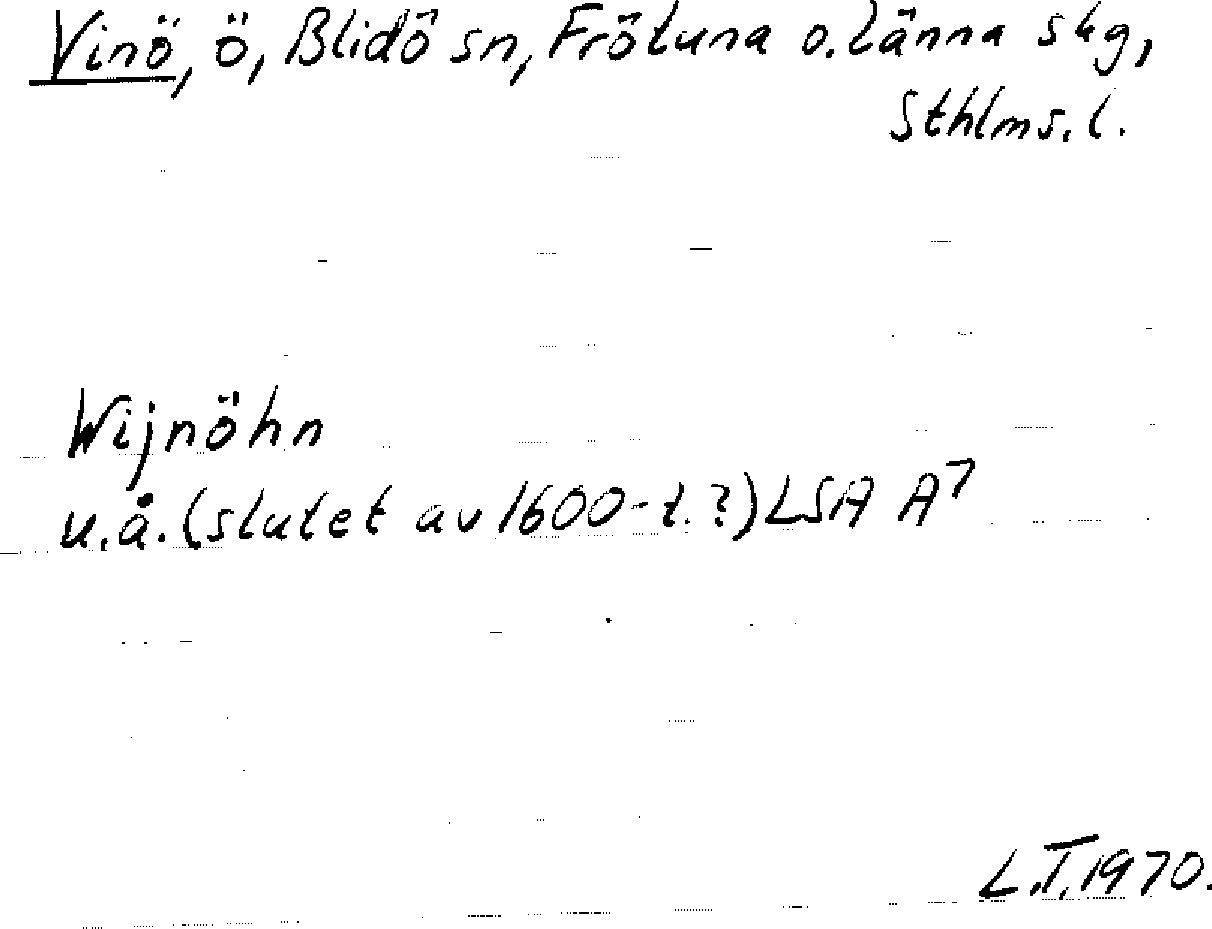 Vinö, ö, Blidö sn, Frötuna o. Länna skg,
Sthlms. l.
Wijnöhn
u.å. (slutet av 1600-t.?) LSA A7
L.T. 1970.